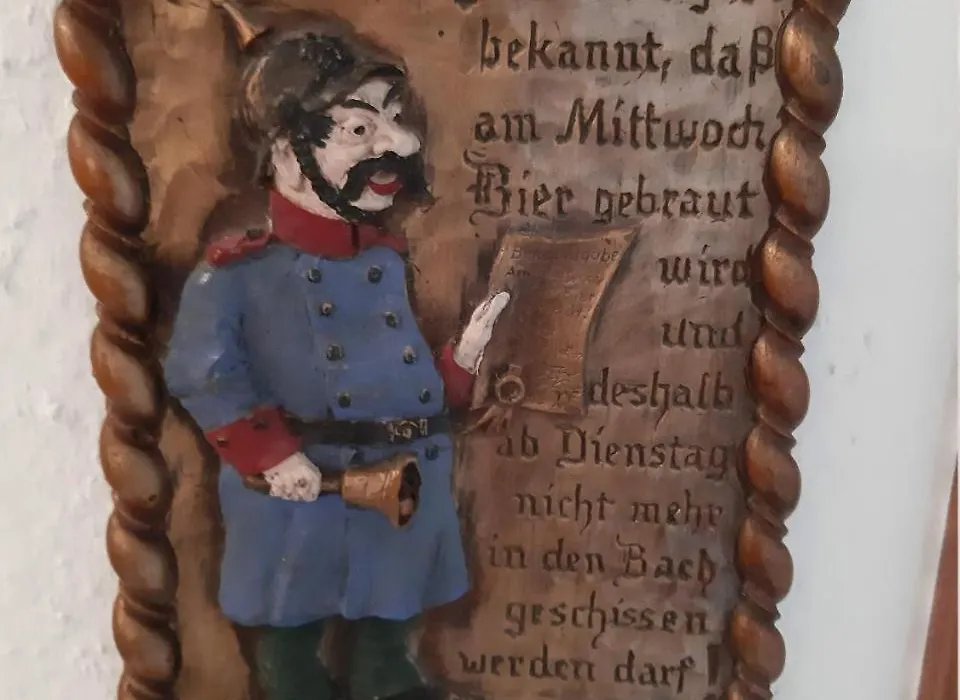 bekannt, daß
am Mittwoch
Bier gebraut
wird
und
deshalb
ab Dienstag
nicht mehr
in den Bach
geschissen
werden darf!